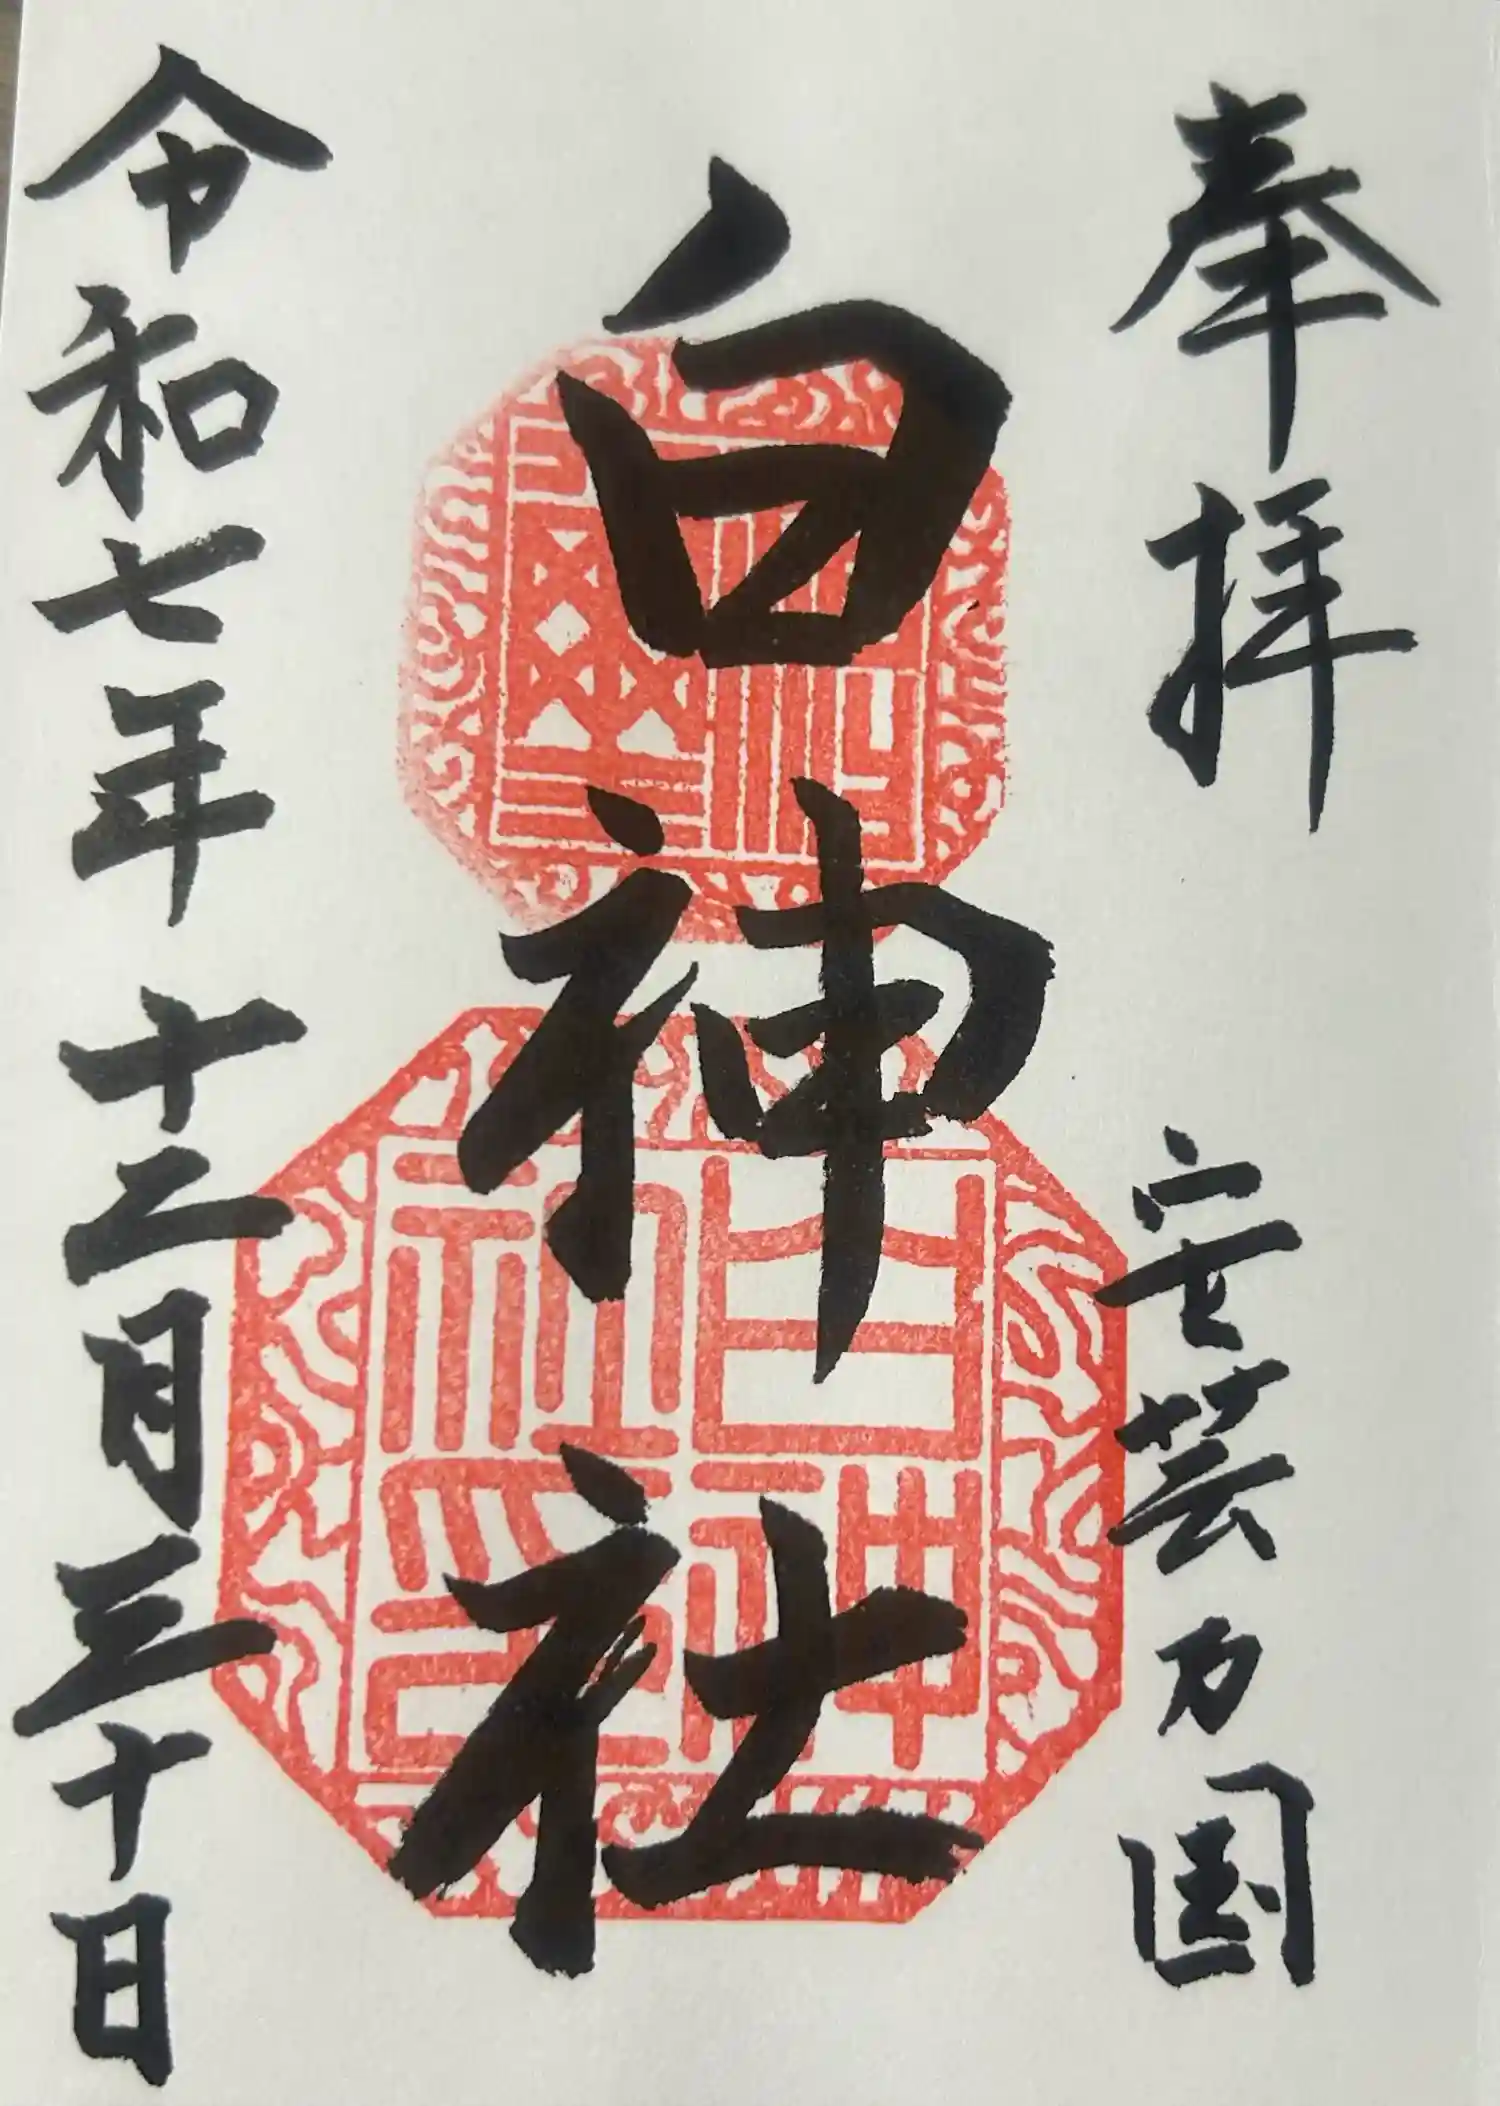 奉拝
安芸乃国
白神社
令和七年十二月三十日
白神社之印